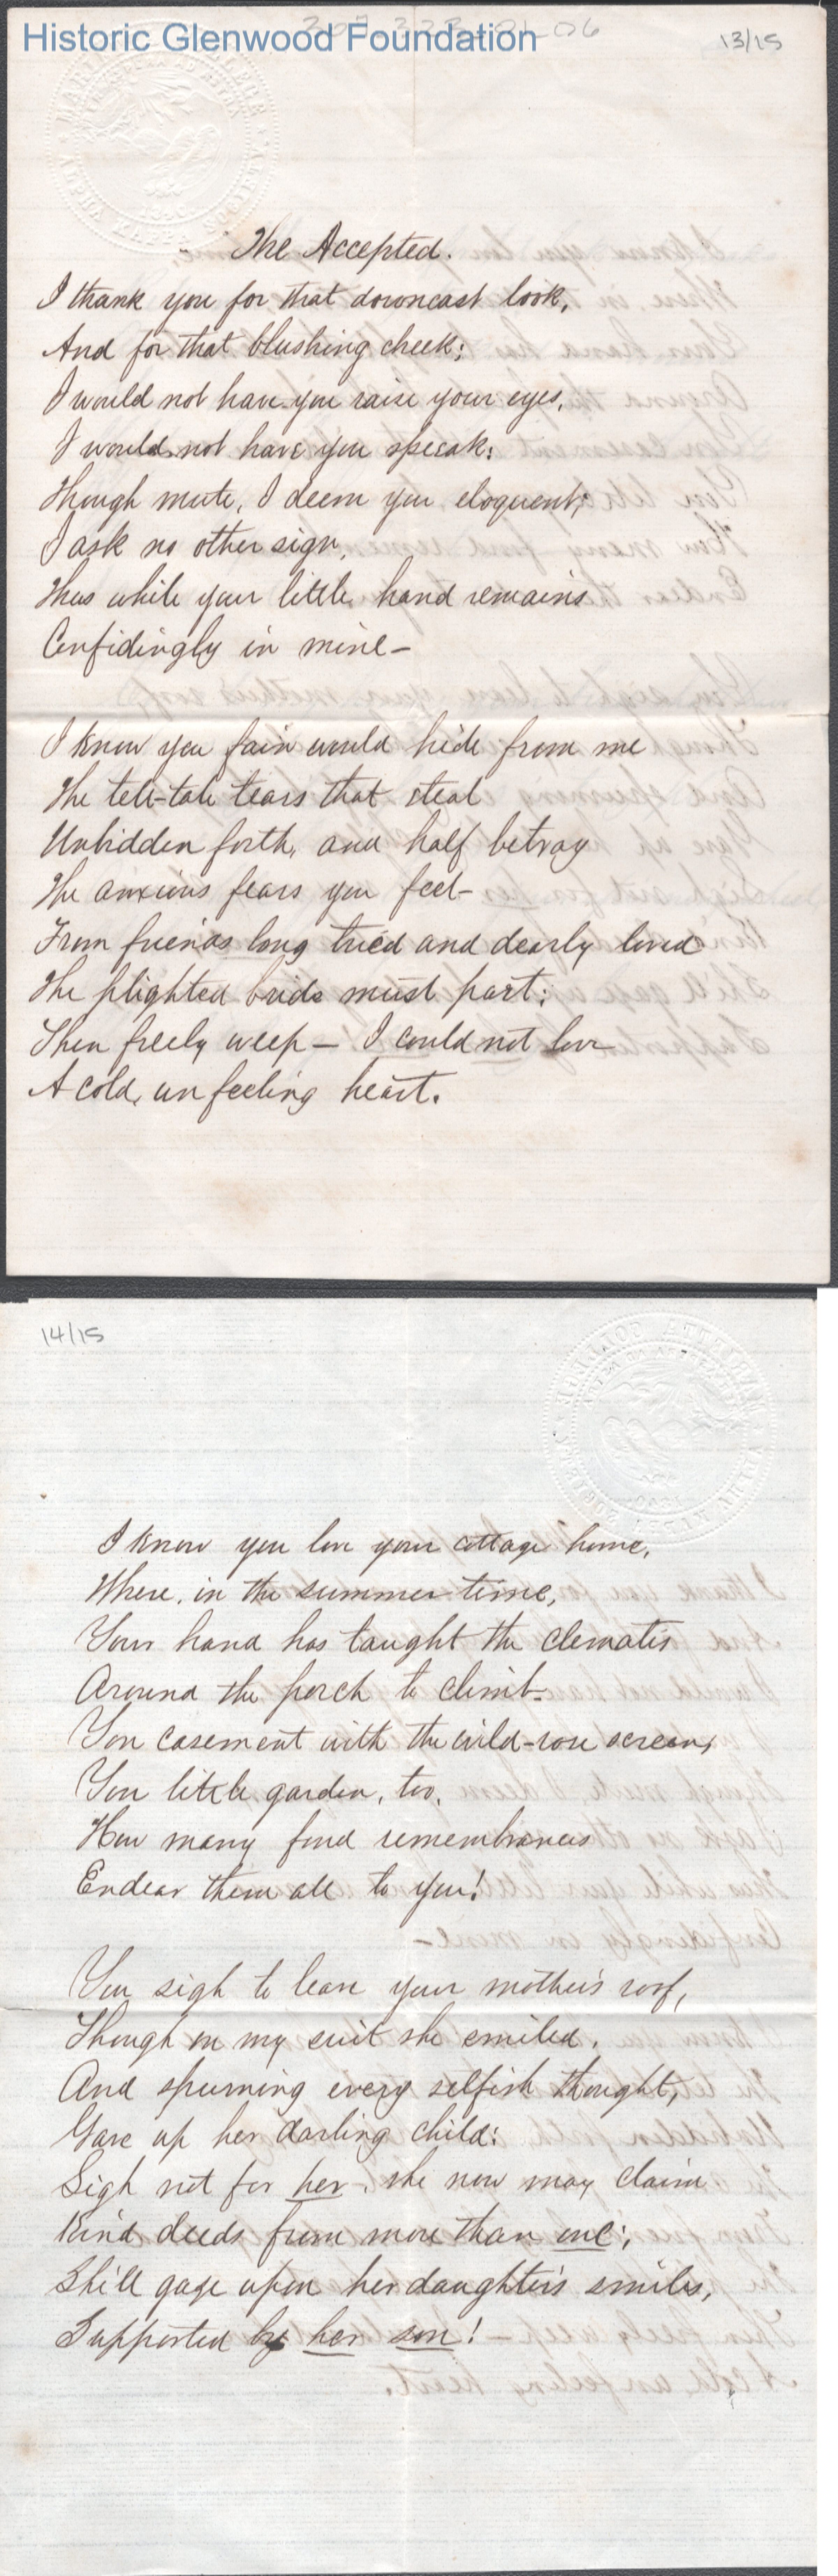 Historic Glenwood Foundation
13/15
The Accepted.
I thank you for that downcast look,
And for that blushing cheek;
I would not have you raise your eyes,
I would not have you speak:
Though mute, I deem you eloquent;
I ask no other sign,
Thus while your little hand remains
Confidingly in mine—
I know you fain would hide from me
The tell-tale tears that steal
Unbidden forth, and half betray
The anxious fears you feel—
From friends long tried and dearly loved
The plighted bride must part;
Then freely weep — I could not love
A cold, unfeeling heart.
14/15
I know you love your cottage home,
Where, in the summer time,
Your hand has taught the clematis
Around the porch to climb—
Yon casement with the wild-rose screen,
Yon little garden, too,
How many fond remembrances
Endear them all to you!
You sigh to leave your mother's roof,
Though on my suit she smiled,
And spurning every selfish thought,
Gave up her darling child:
Sigh not for her, she now may claim
Kind deeds from more than one;
She'll gaze upon her daughter's smiles,
Supported by her son!